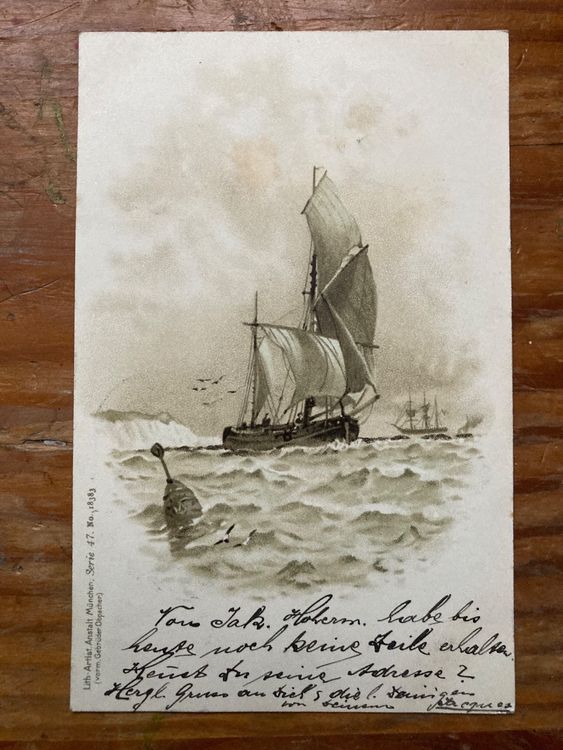 Lith.-Artist. Anstalt München. Serie 47. No. 18383
(vorm. Gebrüder Obpacher)
Von Jak. Hoherm. habe bis
heute noch keine Zeile erhalten.
Kennst Du seine Adresse?
Herzl. Gruss an Dich & die l. Deinigen
von Deinem Jacques